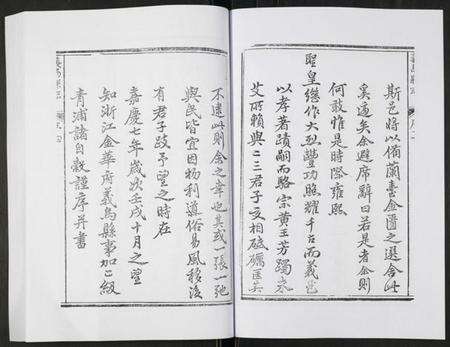 斯邑時以備蘭臺金匱之選舍此
奚適矣余避席辭曰若是者余則
何敢惟是時際雍熙
聖皇繼作大丕豐功照耀千古而義邑
以孝著蹟嗣而駱宗黃王芳躅未
艾所賴與二三君子交相砥礪匡其
不逮此則余之幸也其或一張一弛
與民皆宜因物利導俗易風移後
有君子跂予望之時在
嘉慶七年歲次壬戌十月之望
知浙江金華府義烏縣事加二級
青浦諸自穀謹序并書